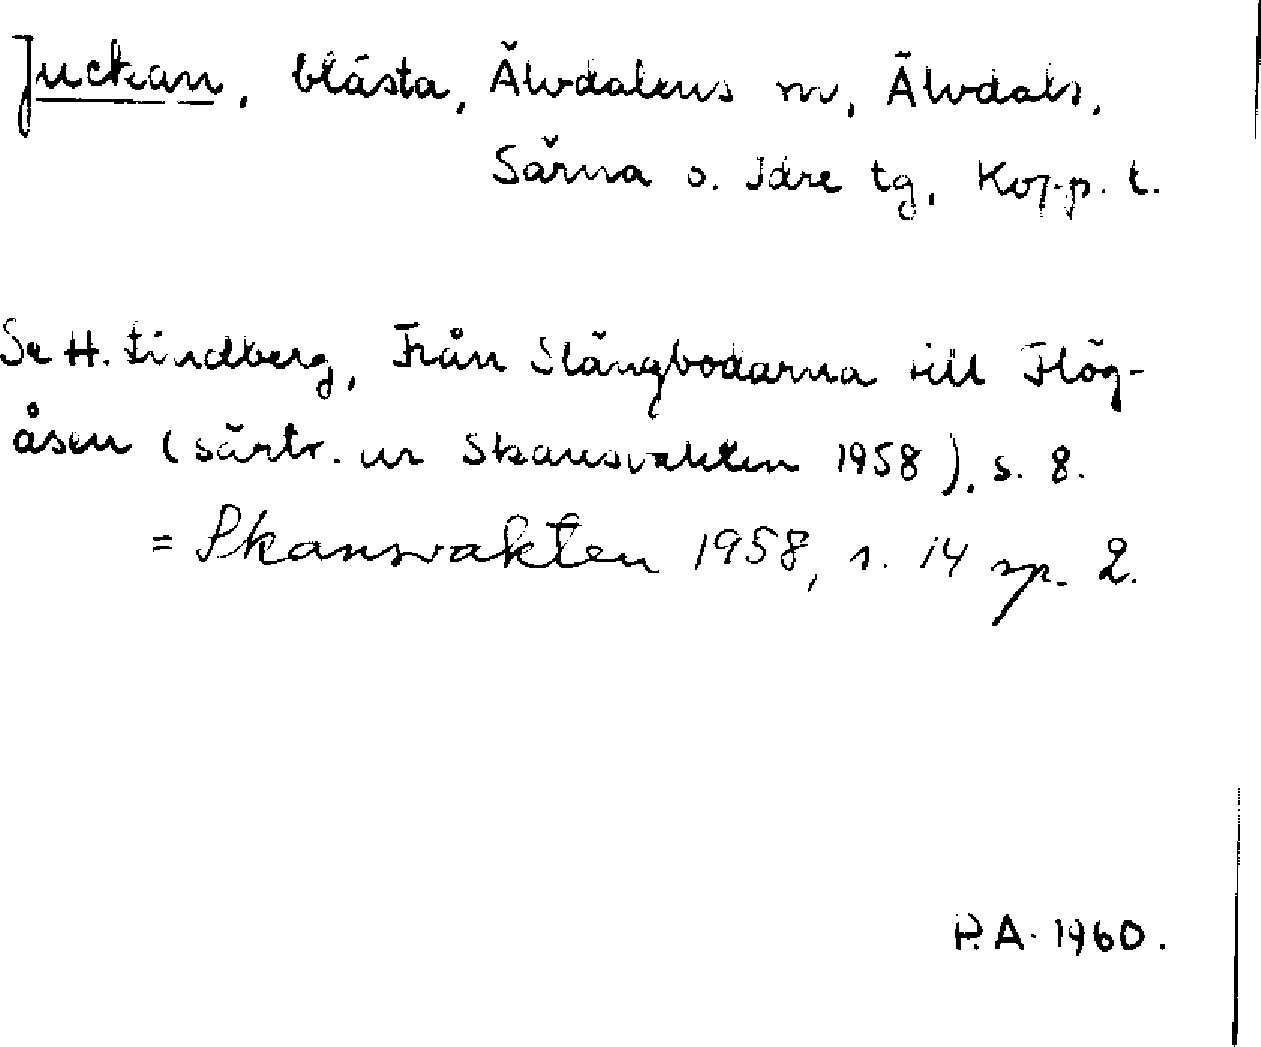 Juckan, blästa, Älvdalens sn, Älvdals,
Särna o. Idre tg, Kopp. l.
Se H. Lindberg, Från Slängbodarna till Hög-
åsen (särtr. ur Skansvakten 1958), s. 8.
= Skansvakten 1958, s. 14 sp. 2.
P.A. 1960.